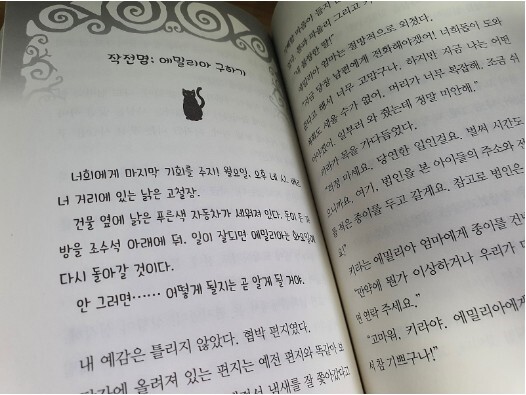 작전명: 에밀리아 구하기
너희에게 마지막 기회를 주지! 월요일, 오후 네 시,
너 거리에 있는 낡은 고철장.
건물 옆에 낡은 푸른색 자동차가 세워져 있다. 돈이 든 가
방을 조수석 아래에 둬. 일이 잘되면 에밀리아는 화요일에
다시 돌아갈 것이다.
안 그러면…… 어떻게 될지는 곧 알게 될 거야.
내 예감은 틀리지 않았다. 협박 편지였다.
올려져 있는 편지는 예전 편지와 똑같아 보
냄새를 잘 쫓아갔다고
엄마는 절망적으로 외쳤다.
"지금 당장 남편에게 전화해야겠어! 너희들이 도와
준다고 해서 너무 고맙구나. 하지만 지금 나는 어떤
쓸 수가 없어. 머리가 너무 복잡해. 조금 쉬
일부러 와 줬는데 정말 미안해."
목을 가다듬었다.
마세요. 당연한 일인걸요. 벌써 시간도
여기, 범인을 본 아이들의 주소와 전
적은 종이를 두고 갈게요. 참고로 범인은
요!"
키라는 에밀리아 엄마에게 종이를 건넸
"만약에 뭔가 이상하거나 우리가
연락 주세요."
"고마워, 키라야. 에밀리아에게
서 참 기쁘구나!"